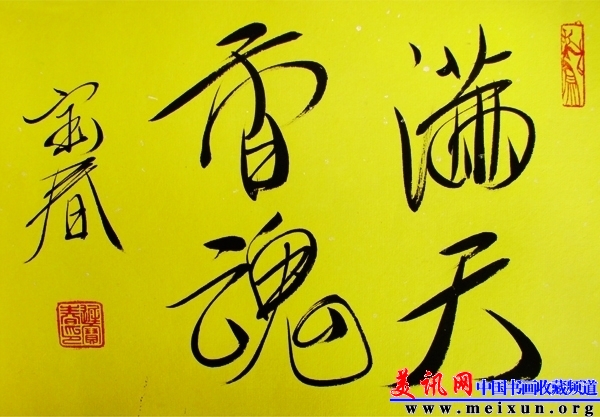 满天
香魂
宝春
美讯网 中国书画收藏频道
www.meixun.org